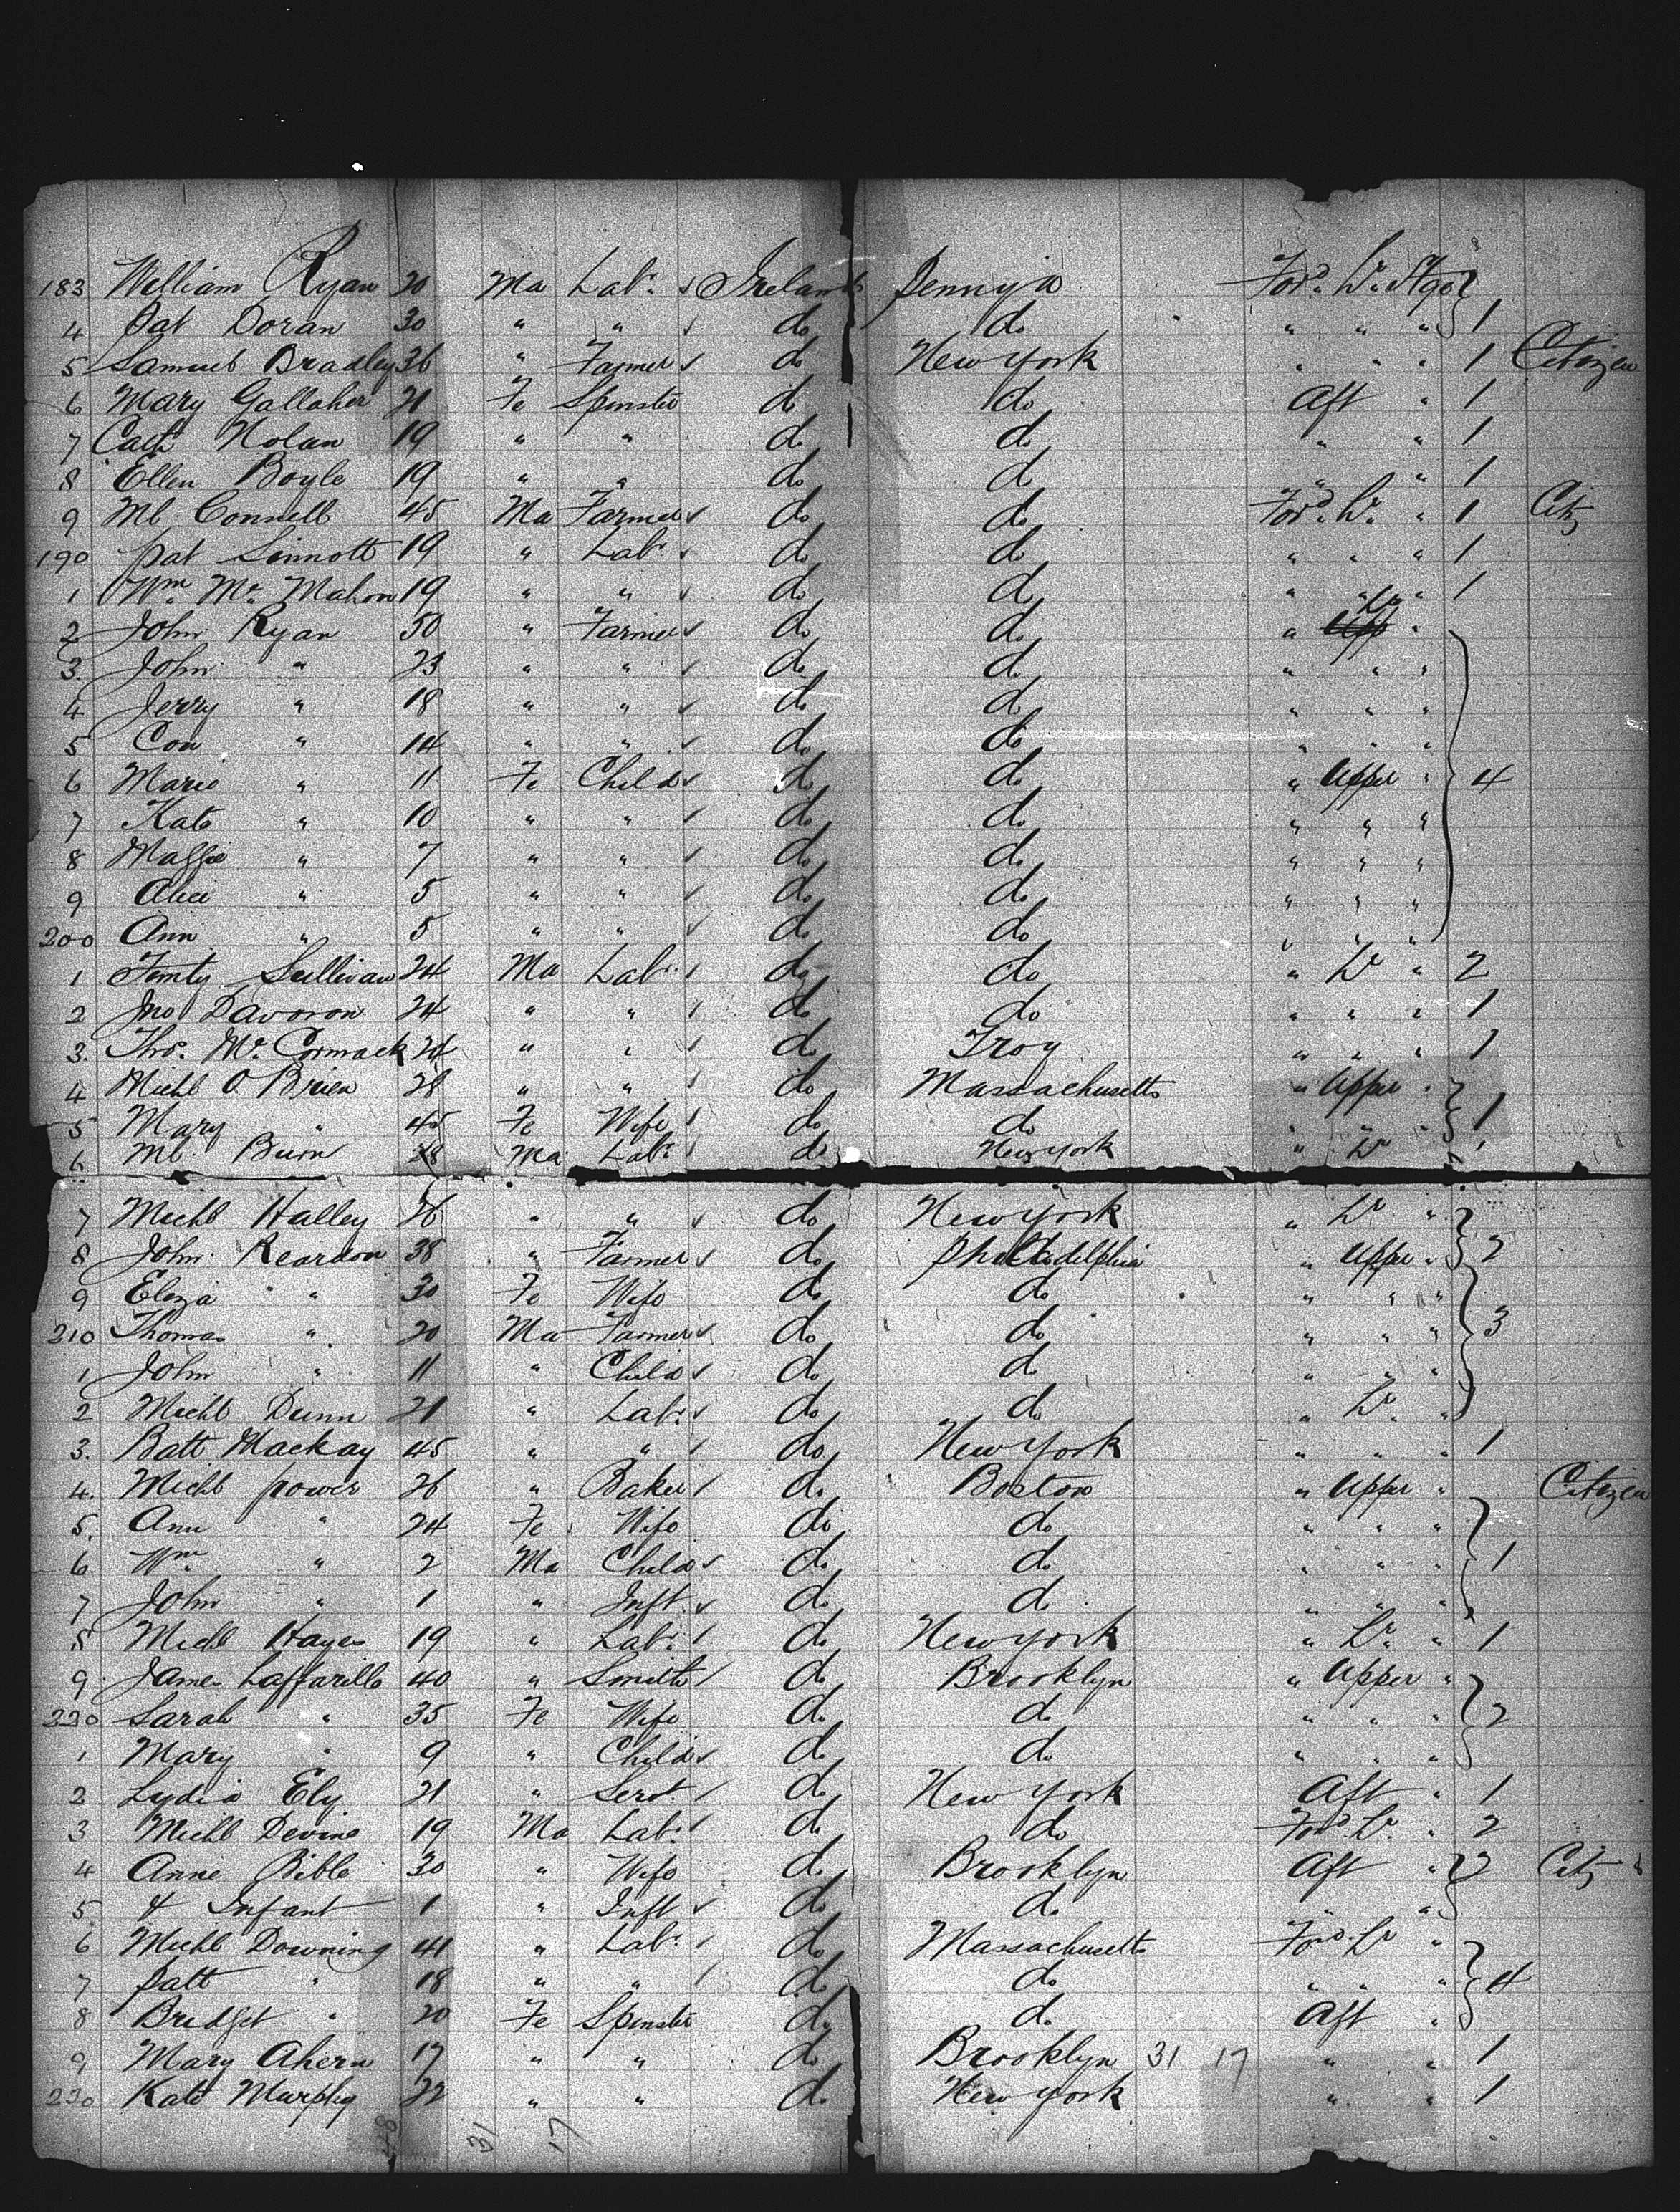 183 William Ryan 20 Ma Labr. Ireland Pennyia Ford. Lr. Stge
4 Pat Doran 30 " " do do " " " 1
5 Samuel Bradley 36 " Farmer do New York " " " 1 Citizen
6 Mary Gallaher 21 Fe Spinster do do Aft " 1
7 Cath Nolan 19 " " do do " " 1
8 Ellen Boyle 19 " " do do " " 1
9 Ml Connell 45 Ma Farmer do do Ford. Lr. " 1 Citz
190 Pat Sinnott 19 " Labr do do " " " 1
1 Wm. Mc. Mahon 19 " " do do " " " 1
2 John Ryan 50 " Farmer do do " Lr "
3. John " 23 " " do do " " "
4 Jerry " 18 " " do do " " "
5 Con " 14 " " do do " " "
6 Marie " 11 Fe Child do do " Upper " 4
7 Kate " 10 " " do do " " "
8 Maggie " 7 " " do do " " "
9 Alice " 5 " " do do " " "
200 Ann " 5 " " do do " " "
1 Timty Sullivan 24 Ma Labr. do do " Lr " 2
2 Jno Davoron 24 " " do do " " " 1
3. Thos. Mc. Cormack 24 " " do Troy " " " 1
4 Michl O Brien 28 " " do Massachusetts " Upper "
5 Mary " 45 Fe Wife do do " " " 1
6 Ml. Burn 28 Ma Labr. do New York " Lr "
7 Michl Halley 26 " " do New York " Lr. "
8 John Reardon 38 " Farmer do Philadelphia " Upper " 2
9 Eliza " 30 Fe Wife do do " " "
210 Thomas " 20 Ma Farmer do do " " " 3
1 John " 11 " Child do do " " "
2 Michl Dunn 21 " Labr. do do " Lr. "
3. Batt Mackay 45 " " do New York " " " 1
4. Michl Power 26 " Baker do Boston " Upper " Citizen
5. Ann " 24 Fe Wife do do " " "
6 Wm. " 2 Ma Child do do " " " 1
7 John " 1 " Inft. do do " " "
8 Michl Hayes 19 " Labr. do New York " Lr. " 1
9 James Laffarello 40 " Smith do Brooklyn " Upper "
220 Sarah " 35 Fe Wife do do " " " 2
1 Mary " 9 " Child do do " " "
2 Lydia Ely 21 " Servt. do New York Aft " 1
3 Michl Devine 19 Ma Labr. do do Ford. Lr. " 2
4 Anne Bible 30 " Wife do Brooklyn Aft " 2 Citz
5 & Infant 1 " Inft do do " "
6 Michl Downing 41 " Labr. do Massachusetts Ford. Lr "
7 Patt " 18 " " do do " " " 4
8 Bridget " 20 Fe Spinster do do Aft "
9 Mary Ahern 17 " " do Brooklyn 31 17 " " 1
230 Kate Murphy 22 " " do New York " " 1
31 17